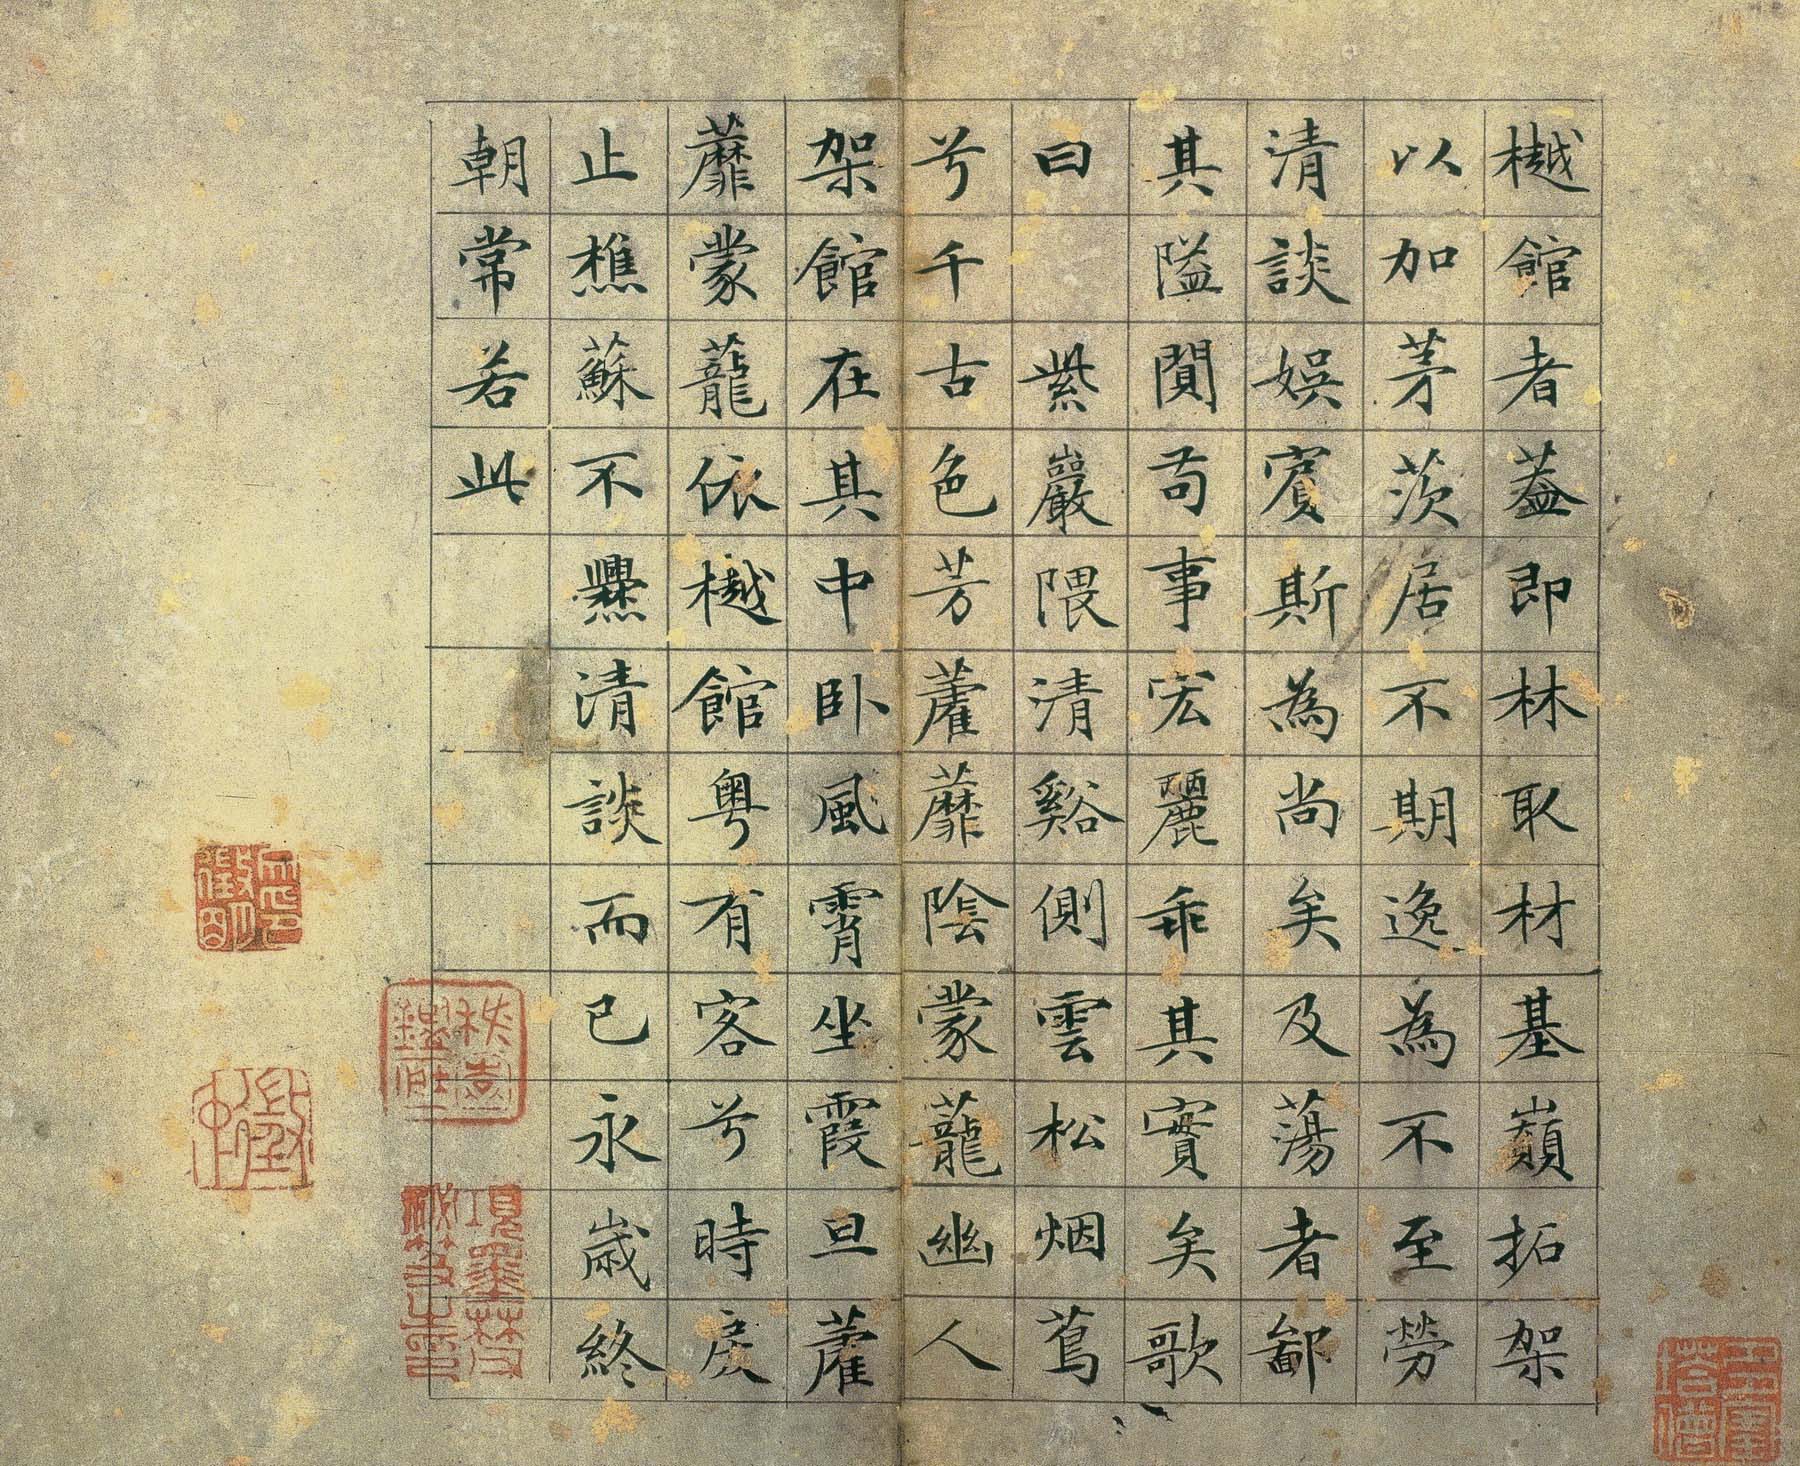 樾館者蓋即林取材基巔拓架
以加茅茨居不期逸為不至勞
清談娛賓斯為尚矣及蕩者鄙
其隘閴苟事宏麗乖其實矣歌
曰　紫巖隈清谿側雲松烟蔦
兮千古色芳藿蘼陰蒙蘢幽人
架館在其中卧風霄坐霞旦藿
蘼蒙蘢依樾館粤有客兮時戾
止樵蘇不爨清談而已永歲終
朝常若此
項墨林父秘笈之印
文徵明印
徵仲